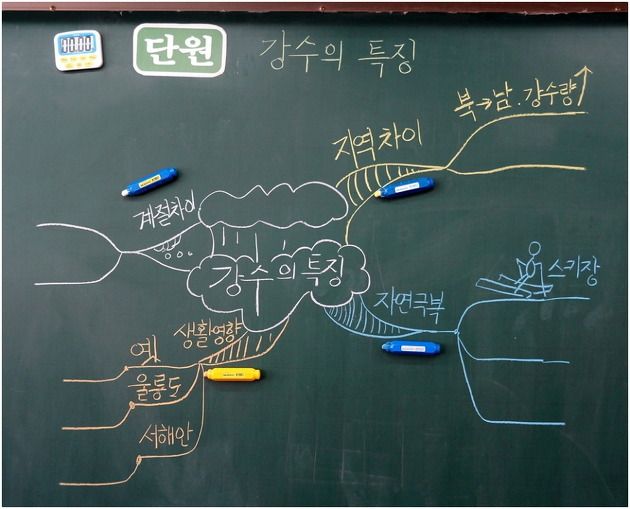 단원 강수의 특징
북→남. 강수량↑
지역차이
계절차이
강수의 특징
스키장
자연극복
생활영향
옛
울릉도
서해안